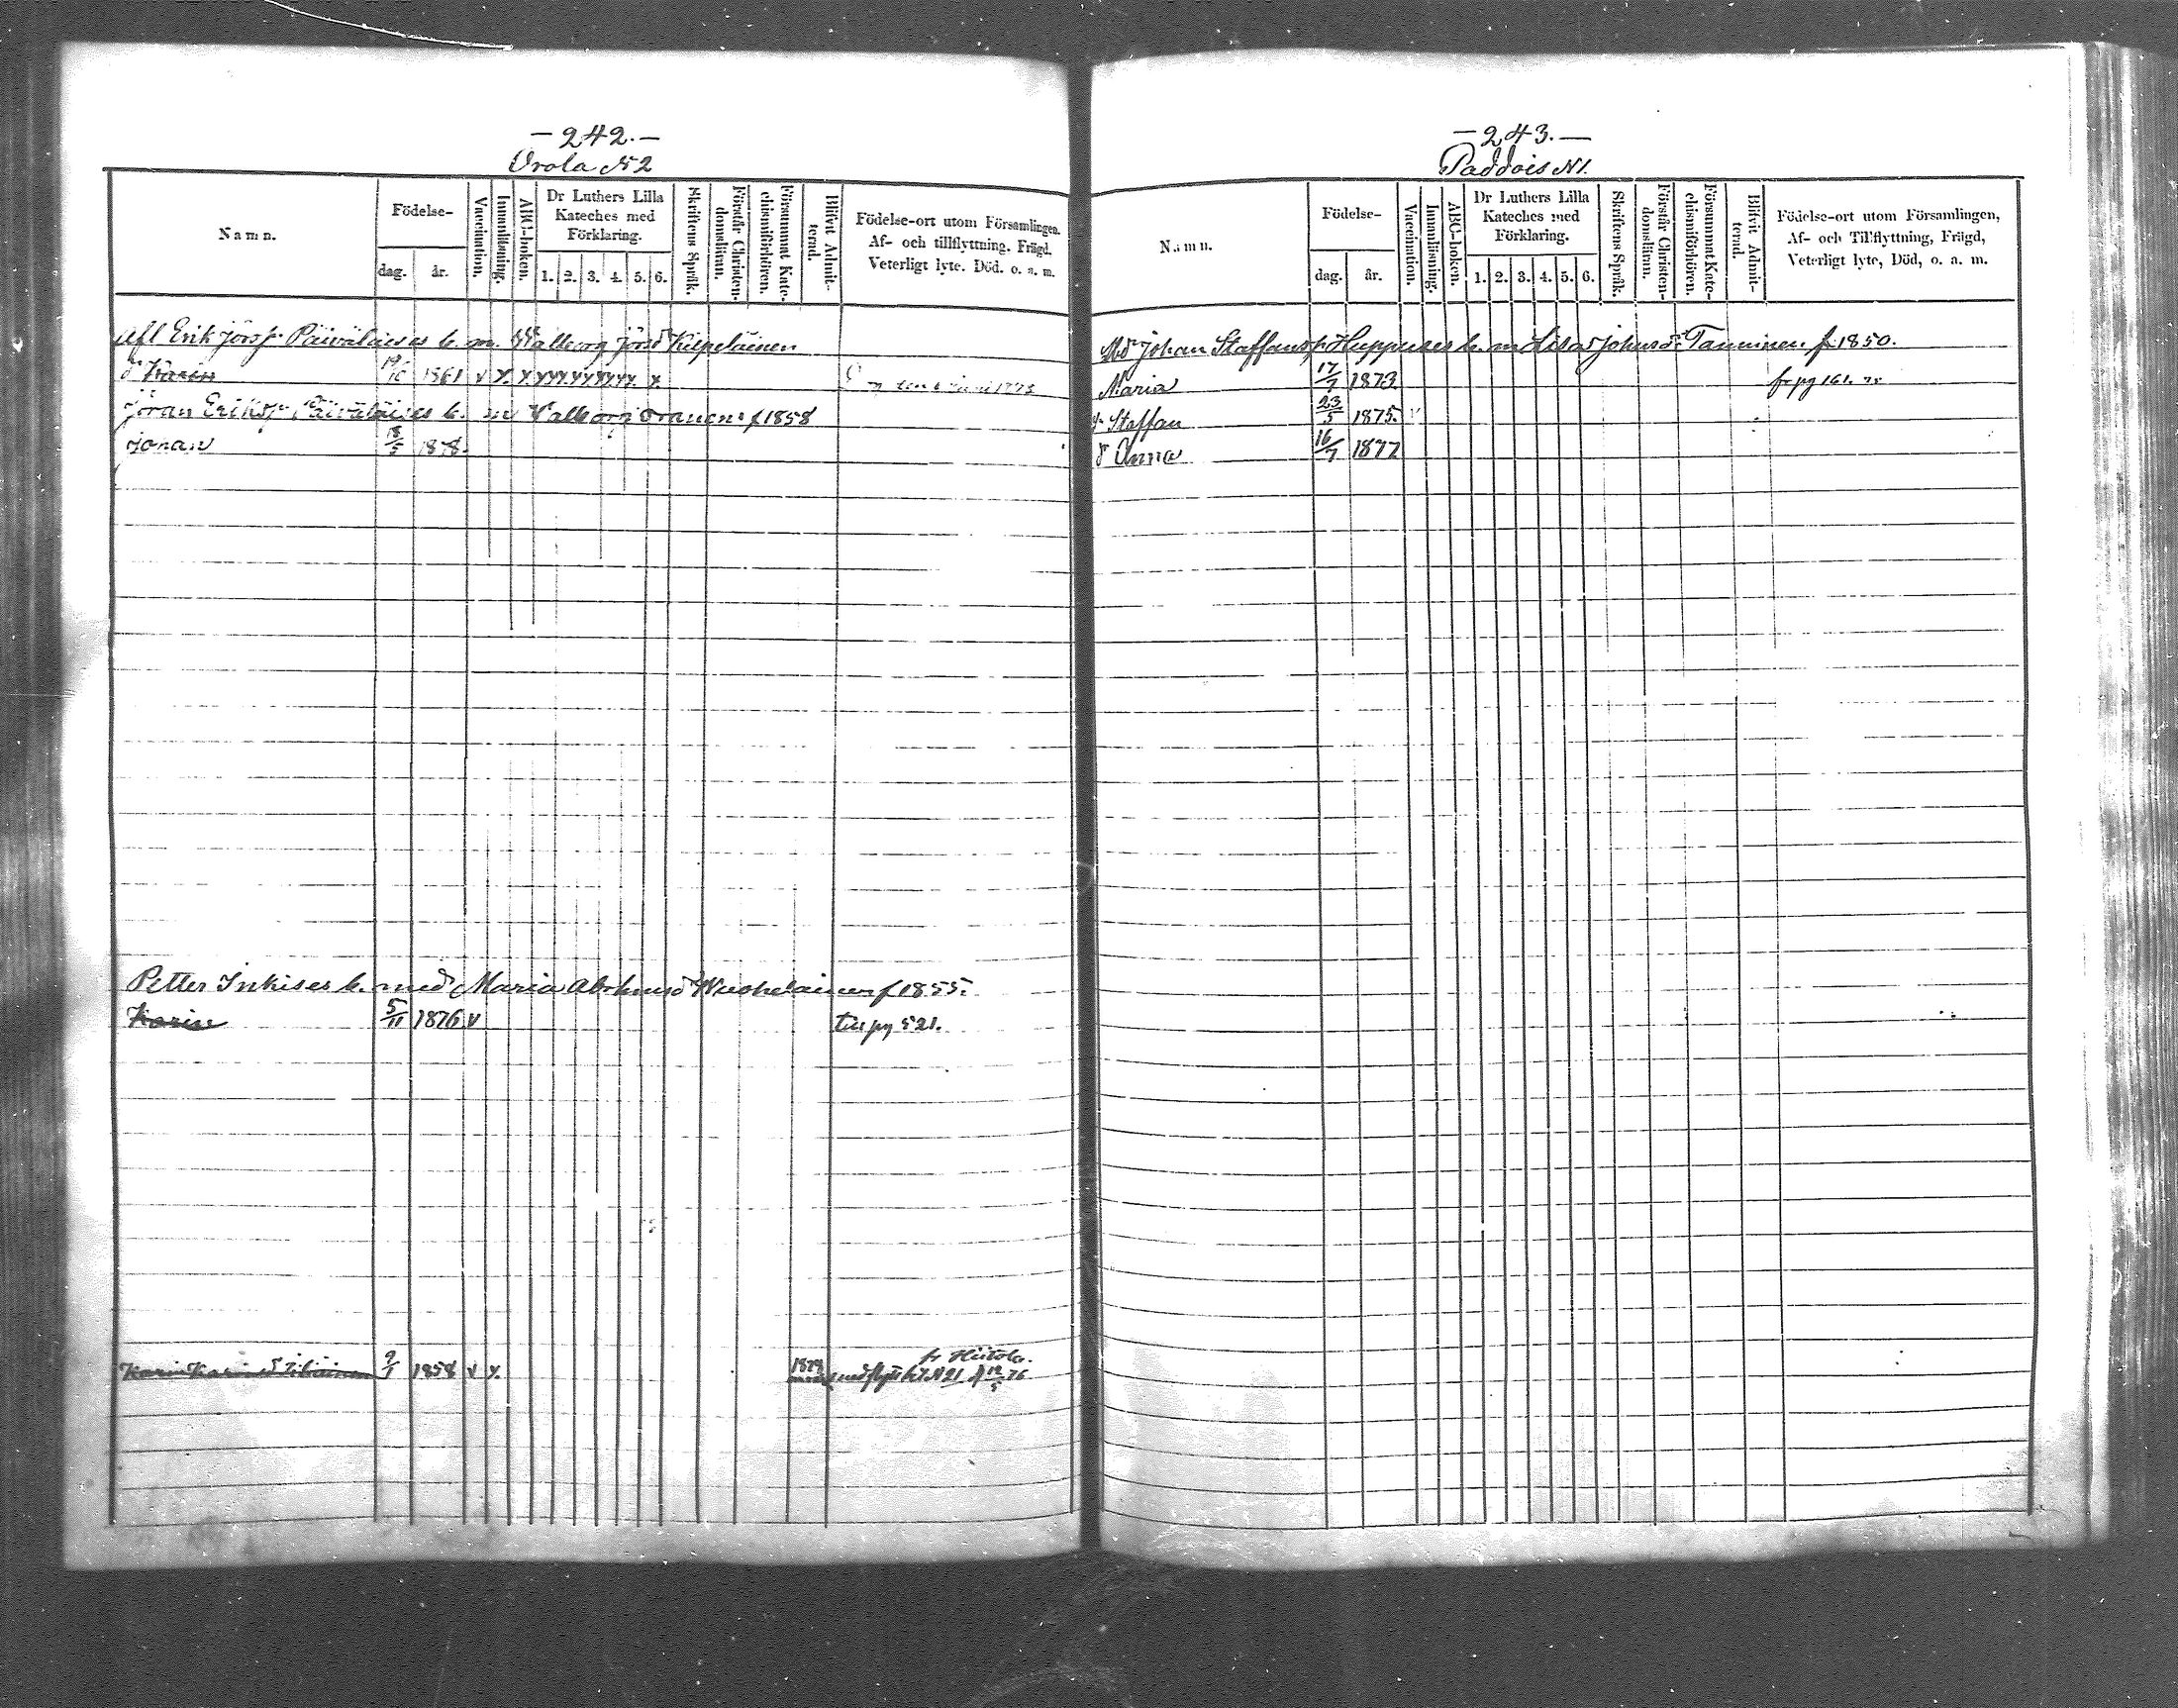 -242.-
Orola N:2
Namn.
Födelse-
dag. år.
Vaccination.
Innanläsning.
ABC-boken.
Dr Luthers Lilla Kateches med Förklaring.
1. 2. 3. 4. 5. 6.
Skriftens Språk.
Förstår Christendomsläran.
Försummat Katechismiförhören.
Blifvit Admitterad.
Födelse-ort utom Församlingen.
Af- och tillflyttning. Frägd.
Veterligt lyte. Död. o. s. m.
Afl Erik Jörsf. Päiväläises b. m. Walborg Jörsd Kilpeläinen
d Karin 19/10 1861 v x. x
Jöran Eriksf. Päiväläises b. m Walborg Oranen f 1858
Johan 18/5 1878.
Petter Inkises b. med Maria f 1855.
Karin 5/11 1876 v till pg 521.
fr Hiitola.
Karin 9/1 1858 v x. 1874
-243.-
Paddois N1.
Namn.
Födelse-
dag. år.
Vaccination.
Innanläsning.
ABC-boken.
Dr Luthers Lilla Kateches med Förklaring.
1. 2. 3. 4. 5. 6.
Skriftens Språk.
Förstår Christendomsläran.
Försummat Katechismiförhören.
Blifvit Admitterad.
Födelse-ort utom Församlingen,
Af- och Tillflyttning, Frägd,
Veterligt lyte, Död, o. a. m.
Johan Staffansf. Huppuses b. m Lisa Johnsd. Tanninen f 1850.
Maria 17/7 1873 fr pg 161.
Staffan 23/5 1875. v
d Anna 16/7 1877